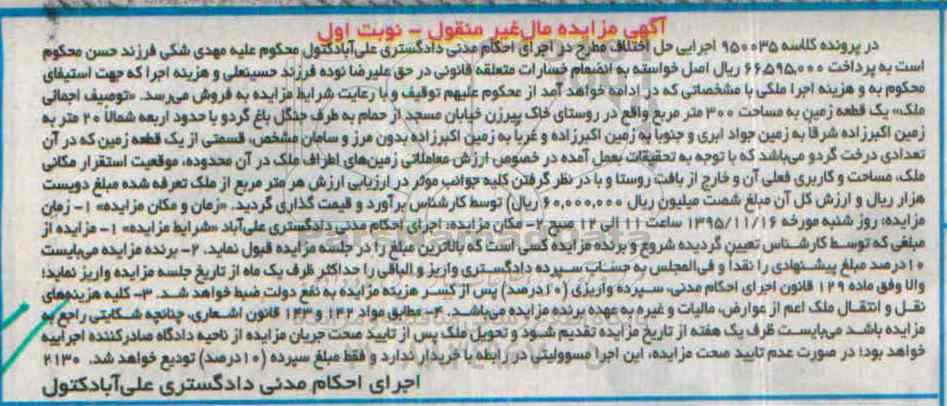 آگهی مزایده مال غیر منقول - نوبت اول
در پرونده کلاسه ۹۵۰۰۳۵ اجرایی حل اختلاف مطرح در اجرای احکام مدنی دادگستری علی‌آبادکتول محکوم علیه مهدی شکی فرزند حسن محکوم
است به پرداخت ۶۶,۵۹۵,۰۰۰ ریال اصل خواسته به انضمام خسارات متعلقه قانونی در حق علیرضا نوده فرزند حسینعلی و هزینه اجرا که جهت استیفای
محکوم به و هزینه اجرا ملکی با مشخصاتی که در ادامه خواهد آمد از محکوم علیهم توقیف و با رعایت شرایط مزایده به فروش می‌رسد. «توصیف اجمالی
ملک» یک قطعه زمین به مساحت ۳۰۰ متر مربع واقع در روستای خاک پیرزن خیابان مسجد از حمام به طرف جنگل باغ گردو با حدود اربعه شمالا ۲۰ متر به
زمین اکبرزاده شرقا به زمین جواد ابری و جنوبا به زمین اکبرزاده و غربا به زمین اکبرزاده بدون مرز و سامان مشخص، قسمتی از یک قطعه زمین که در آن
تعدادی درخت گردو می‌باشد که با توجه به تحقیقات بعمل آمده در خصوص ارزش معاملاتی زمین‌های اطراف ملک در آن محدوده، موقعیت استقرار مکانی
ملک، مساحت و کاربری فعلی آن و خارج از بافت روستا و با در نظر گرفتن کلیه جوانب موثر در ارزیابی ارزش هر متر مربع از ملک تعرفه شده مبلغ دویست
هزار ریال و ارزش کل آن مبلغ شصت میلیون ریال ۶۰,۰۰۰,۰۰۰ ریال) توسط کارشناس برآورد و قیمت گذاری گردید. «زمان و مکان مزایده» ۱- زمان
مزایده: روز شنبه مورخه ۱۳۹۵/۱۱/۱۶ ساعت ۱۱ الی ۱۲ صبح ۲- مکان مزایده: اجرای احکام مدنی دادگستری علی‌آباد «شرایط مزایده» ۱- مزایده از
مبلغی که توسط کارشناس تعیین گردیده شروع و برنده مزایده کسی است که بالاترین مبلغ را در جلسه مزایده قبول نماید. ۲- برنده مزایده می‌بایست
۱۰ درصد مبلغ پیشنهادی را نقدا و فی‌المجلس به حساب سپرده دادگستری واریز و الباقی را حداکثر ظرف یک ماه از تاریخ جلسه مزایده واریز نماید؛
والا وفق ماده ۱۲۹ قانون اجرای احکام مدنی، سپرده واریزی (۱۰درصد) پس از کسر هزینه مزایده به نفع دولت ضبط خواهد شد. ۳- کلیه هزینه‌های
نقل و انتقال ملک اعم از عوارض، مالیات و غیره به عهده برنده مزایده می‌باشد. ۴- مطابق مواد ۱۴۲ و ۱۴۳ قانون اشعاری، چنانچه شکایتی راجع به
مزایده باشد می‌بایست ظرف یک هفته از تاریخ مزایده تقدیم شود و تحویل ملک پس از تایید صحت جریان مزایده از ناحیه دادگاه صادرکننده اجراییه
خواهد بود؛ در صورت عدم تایید صحت مزایده، این اجرا مسوولیتی در رابطه با خریدار ندارد و فقط مبلغ سپرده (۱۰درصد) تودیع خواهد شد. ۲۱۳۰
اجرای احکام مدنی دادگستری علی‌آبادکتول